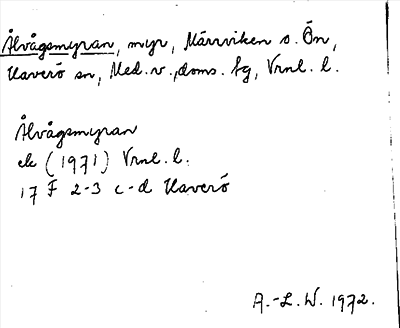 Ålvågsmyran, myr, Märrviken o. Ön,
Haverö sn, Med. v. doms. fg, Vrnl. l.
Ålvågsmyran
ek (1971) Vrnl. l.
17 F 2-3 c-d Haverö
A.-L. W. 1972.